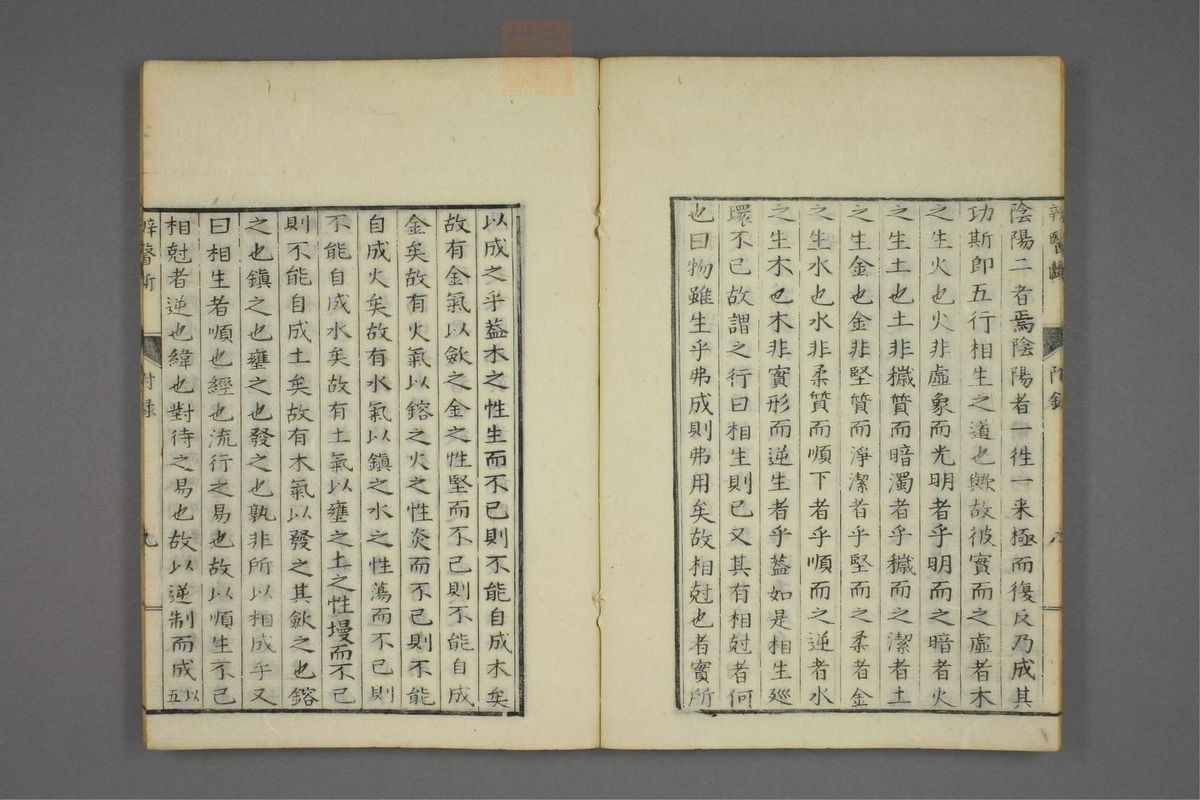 辨醫斷
附錄
八
陰陽二者焉陰陽者一徃一来極而復反乃成其
功斯即五行相生之道也歟故彼實而之虛者木
之生火也火非虛象而光明者乎明而之暗者火
之生土也土非穢質而暗濁者乎穢而之潔者土
之生金也金非堅質而淨潔者乎堅而之柔者金
之生水也水非柔質而順下者乎順而之逆者水
之生木也木非實形而逆生者乎葢如是相生廵
環不已故謂之行曰相生則已又其有相尅者何
也曰物雖生乎弗成則弗用矣故相尅也者實所
以成之乎葢木之性生而不已則不能自成木矣
故有金氣以斂之金之性堅而不已則不能自成
金矣故有火氣以鎔之火之性炎而不已則不能
自成火矣故有水氣以鎮之水之性蕩而不已則
不能自成水矣故有土氣以壅之土之性墁而不已
則不能自成土矣故有木氣以發之其斂之也鎔
之也鎮之也壅之也發之也孰非所以相成乎又
曰相生者順也經也流行之易也故以順生不已
相尅者逆也緯也對待之易也故以逆制而成五以
辨醫斷
附錄
九